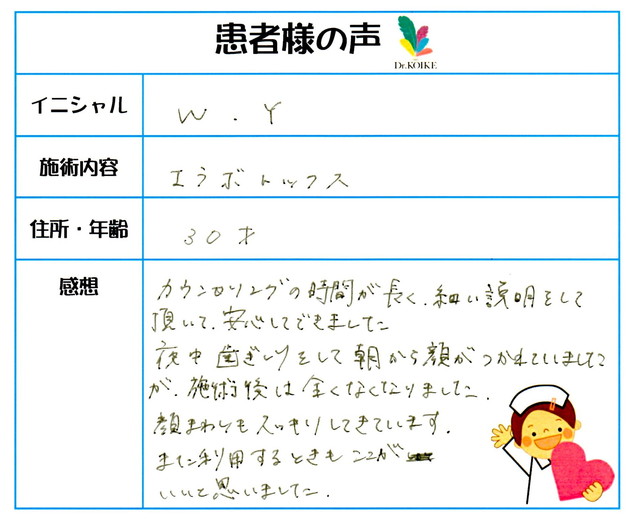 患者様の声
Dr.KOIKE
イニシャル
W.Y
施術内容
エラボトックス
住所・年齢
30才
感想
カウンセリングの時間が長く、細い説明をして
頂いて、安心してできました
夜中歯ぎしりをして朝から顔がつかれていました
が、施術後は全くなくなりました。
顔まわりもスッキリしてきています。
また利用するときもここが
いいと思いました。